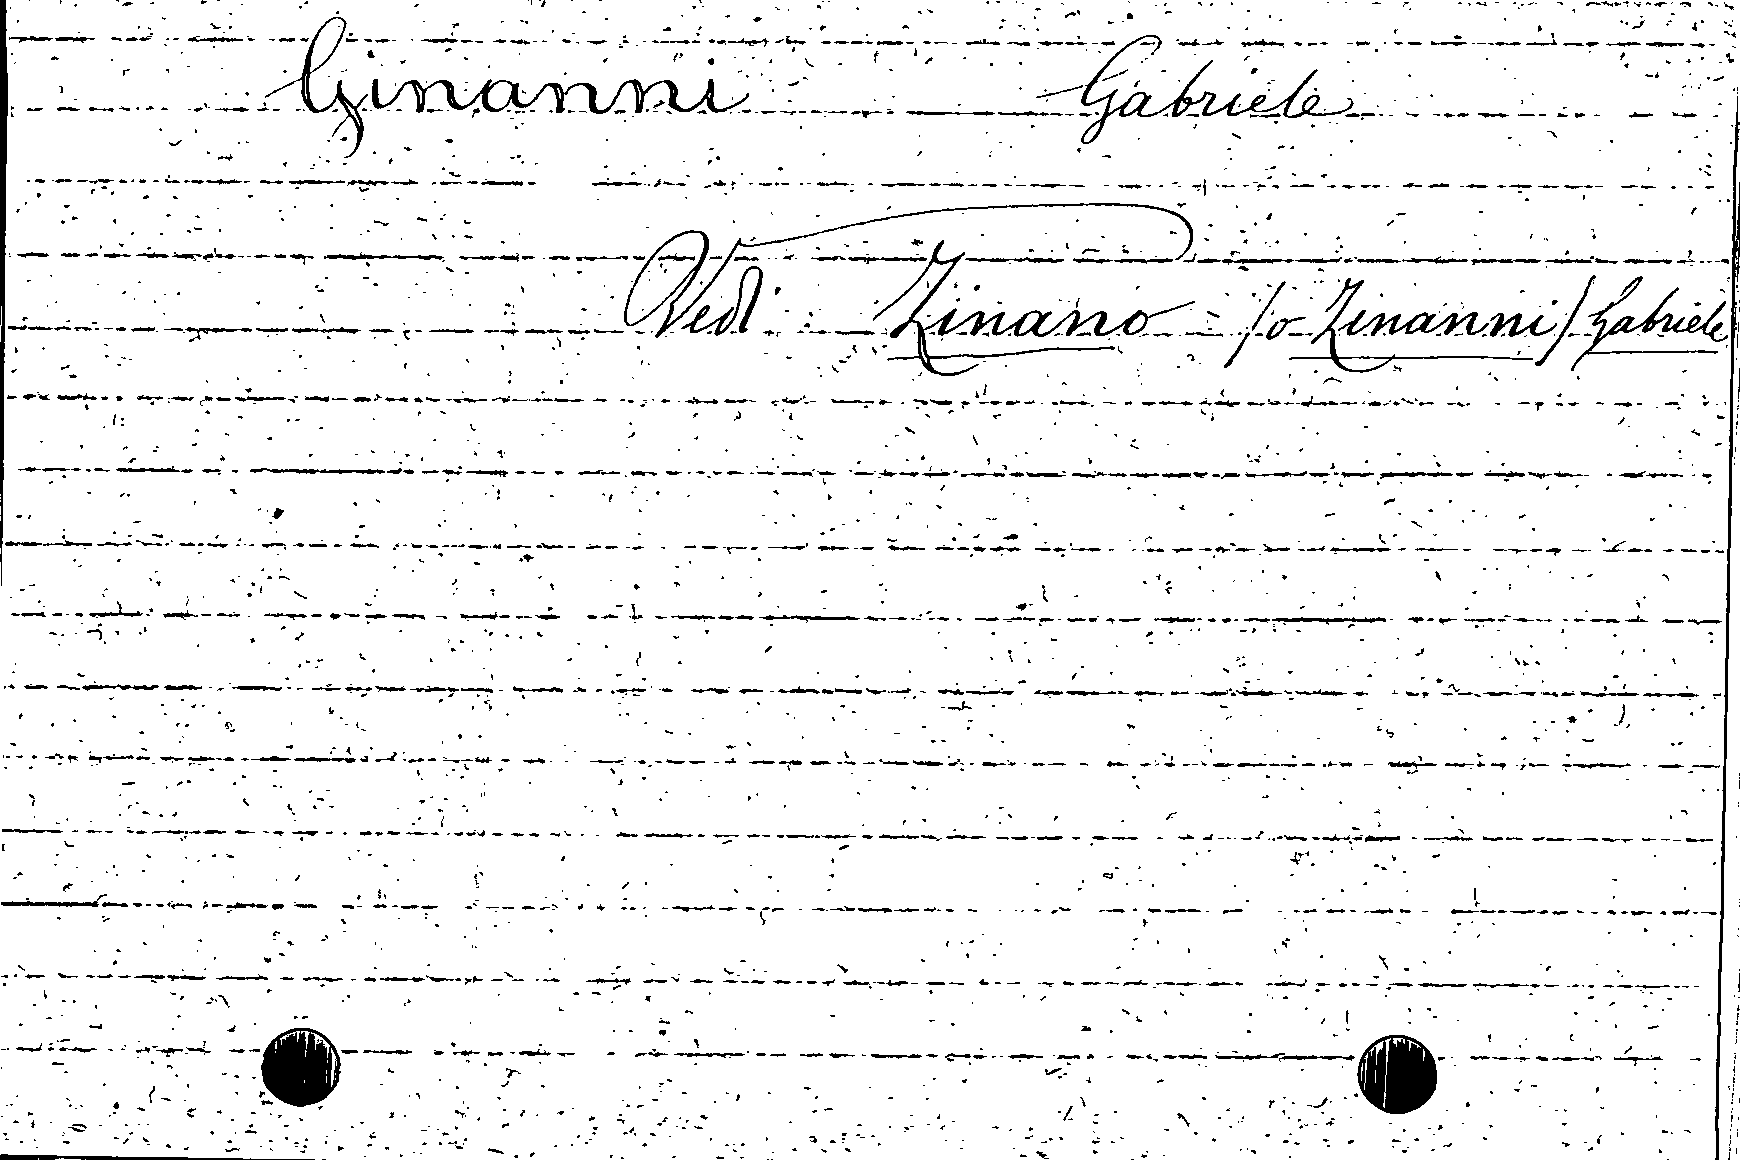 Ginanni Gabriele
Vedi : Zinano - /o Zinanni/ Gabriele